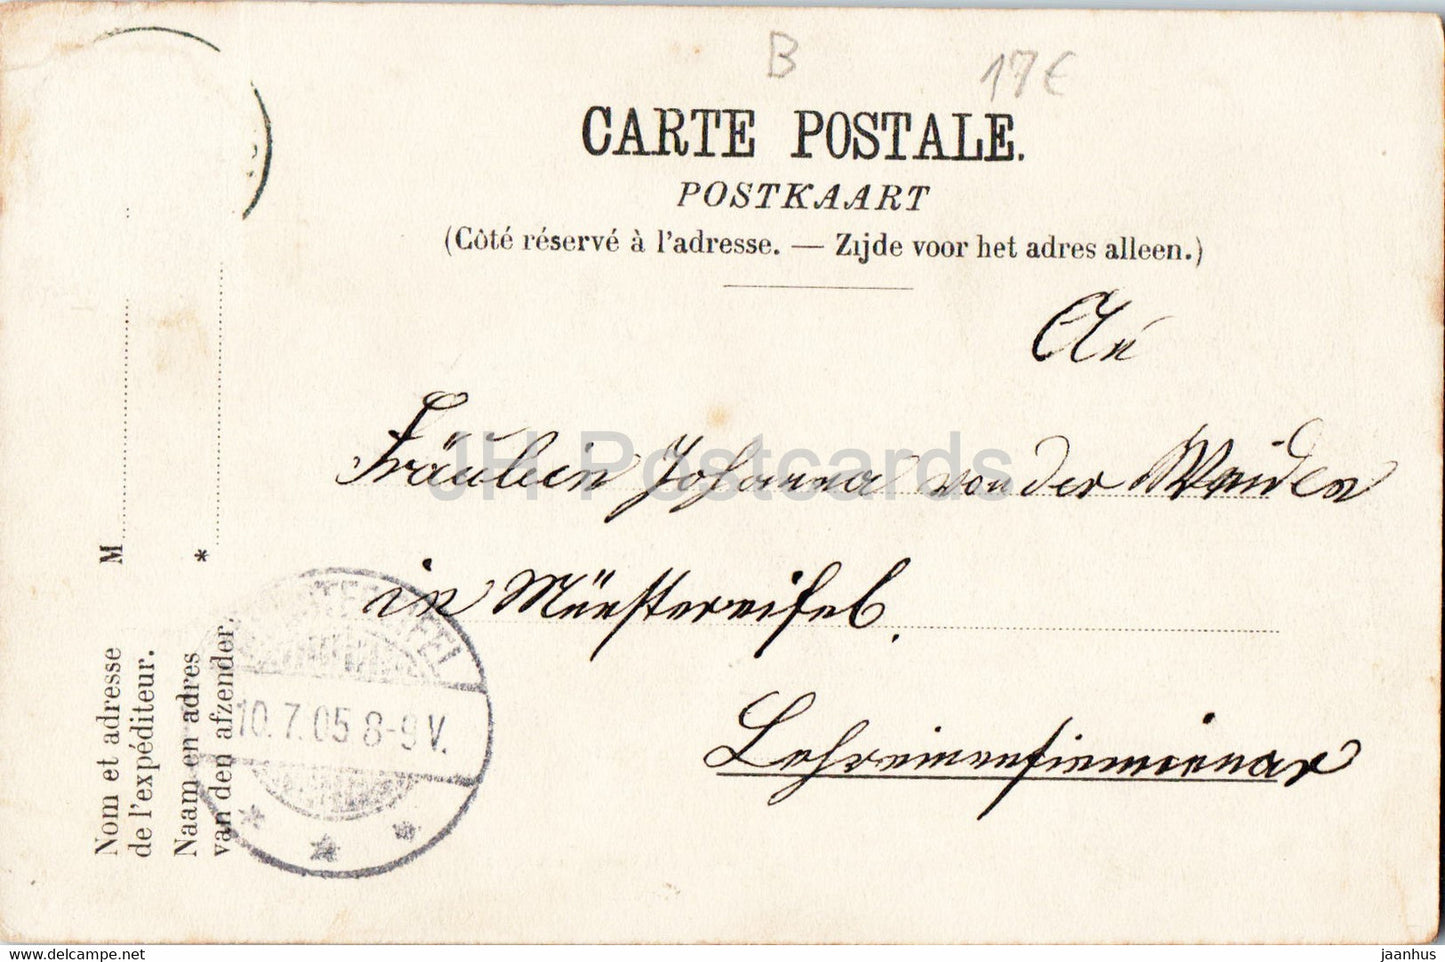 B 17€
CARTE POSTALE.
POSTKAART
(Côté réservé à l'adresse. — Zijde voor het adres alleen.)
An
Fräulein Johanna von der Weiden
in Münstereifel.
M
*
Nom et adresse
de l'expéditeur.
Naam en adres
van den afzender.
MÜNSTEREIFEL
10.7.05 8-9 V.
* * *
JH Postcards
jaanhus